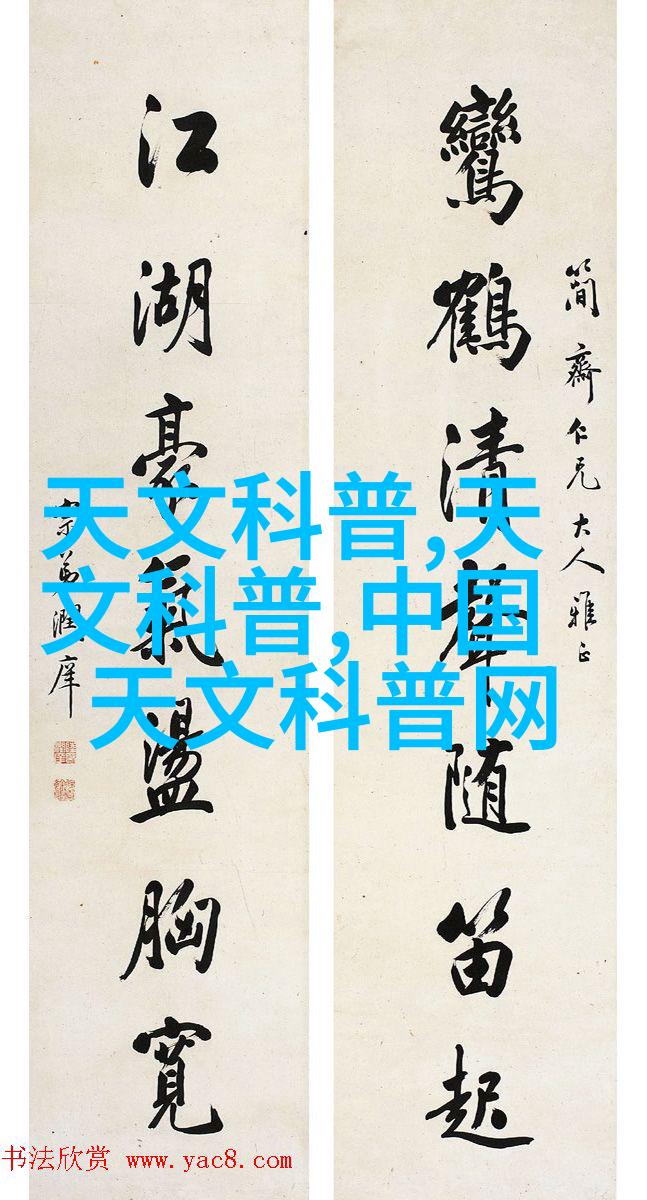 鸞鶴清聲隨笛起
簡齋仁兄大人雅正
江湖豪氣盪胸寬
天文科普,天
文科普,中国
天文科普网
书法欣赏 www.yac8.com